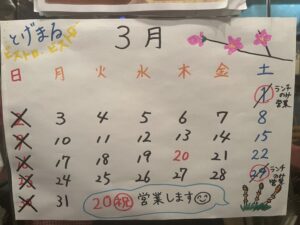 とげまる
ビストロ・ピスタ
3月
日 月 火 水 木 金 土
1 ランチのみ営業
2 3 4 5 6 7 8
9 10 11 12 13 14 15
16 17 18 19 20 21 22
23 24 25 26 27 28 29 ランチのみ営業
30 31
20 祝 営業します